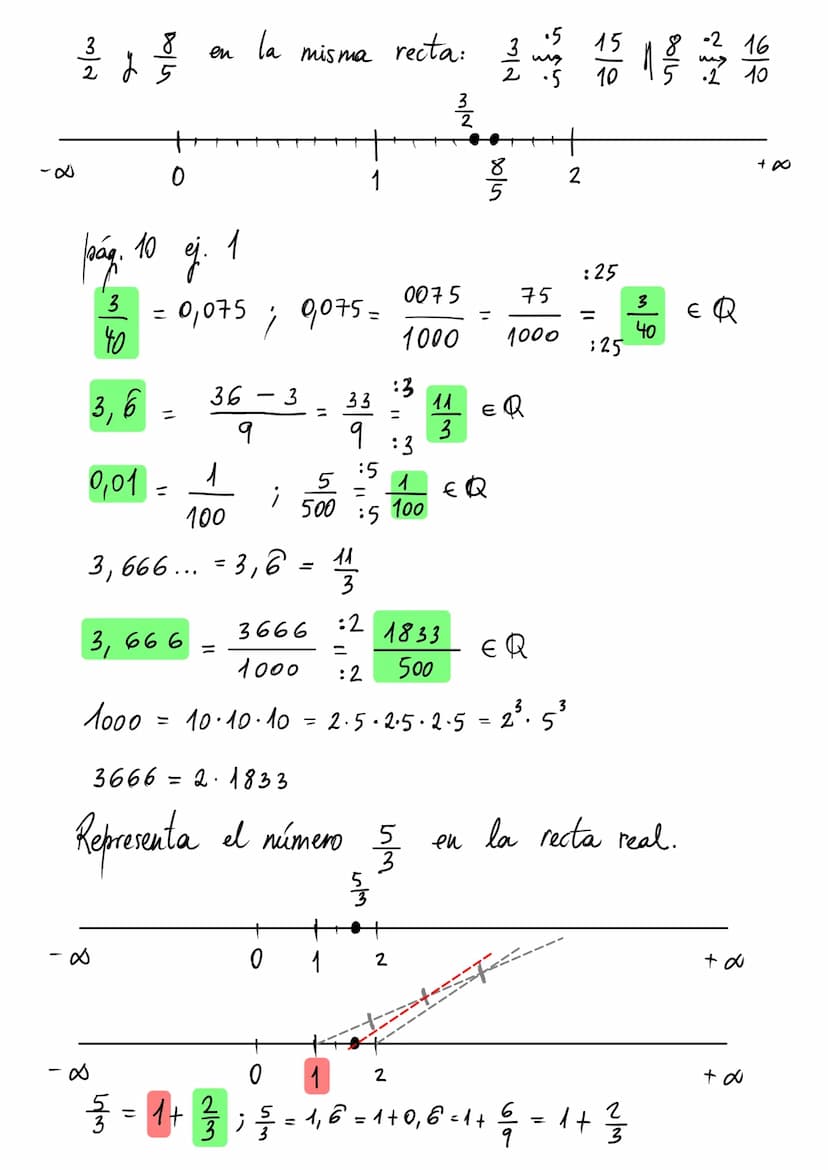 3/2 y 8/5 en la misma recta: 3/2 ·5 ·5 15/10 || 8/5 ·2 ·2 16/10
3/2
-∞ 0 1 8/5 2 +∞
pág. 10 ej. 1
3/40 = 0,075 ; 0,075 = 0075/1000 = 75/1000 :25 = :25 3/40 ∈ Q
3,6̂ = 36 - 3/9 = 33/9 :3 = :3 11/3 ∈ Q
0,01 = 1/100 ; 5/500 :5 = :5 1/100 ∈ Q
3,666... = 3,6̂ = 11/3
3,666 = 3666/1000 :2 = :2 1833/500 ∈ Q
1000 = 10·10·10 = 2·5·2·5·2·5 = 2³·5³
3666 = 2·1833
Representa el número 5/3 en la recta real.
5/3
-∞ 0 1 2 +∞
-∞ 0 1 2 +∞
5/3 = 1+ 2/3 ; 5/3 = 1,6̂ = 1+0,6̂ = 1+ 6/9 = 1+ 2/3